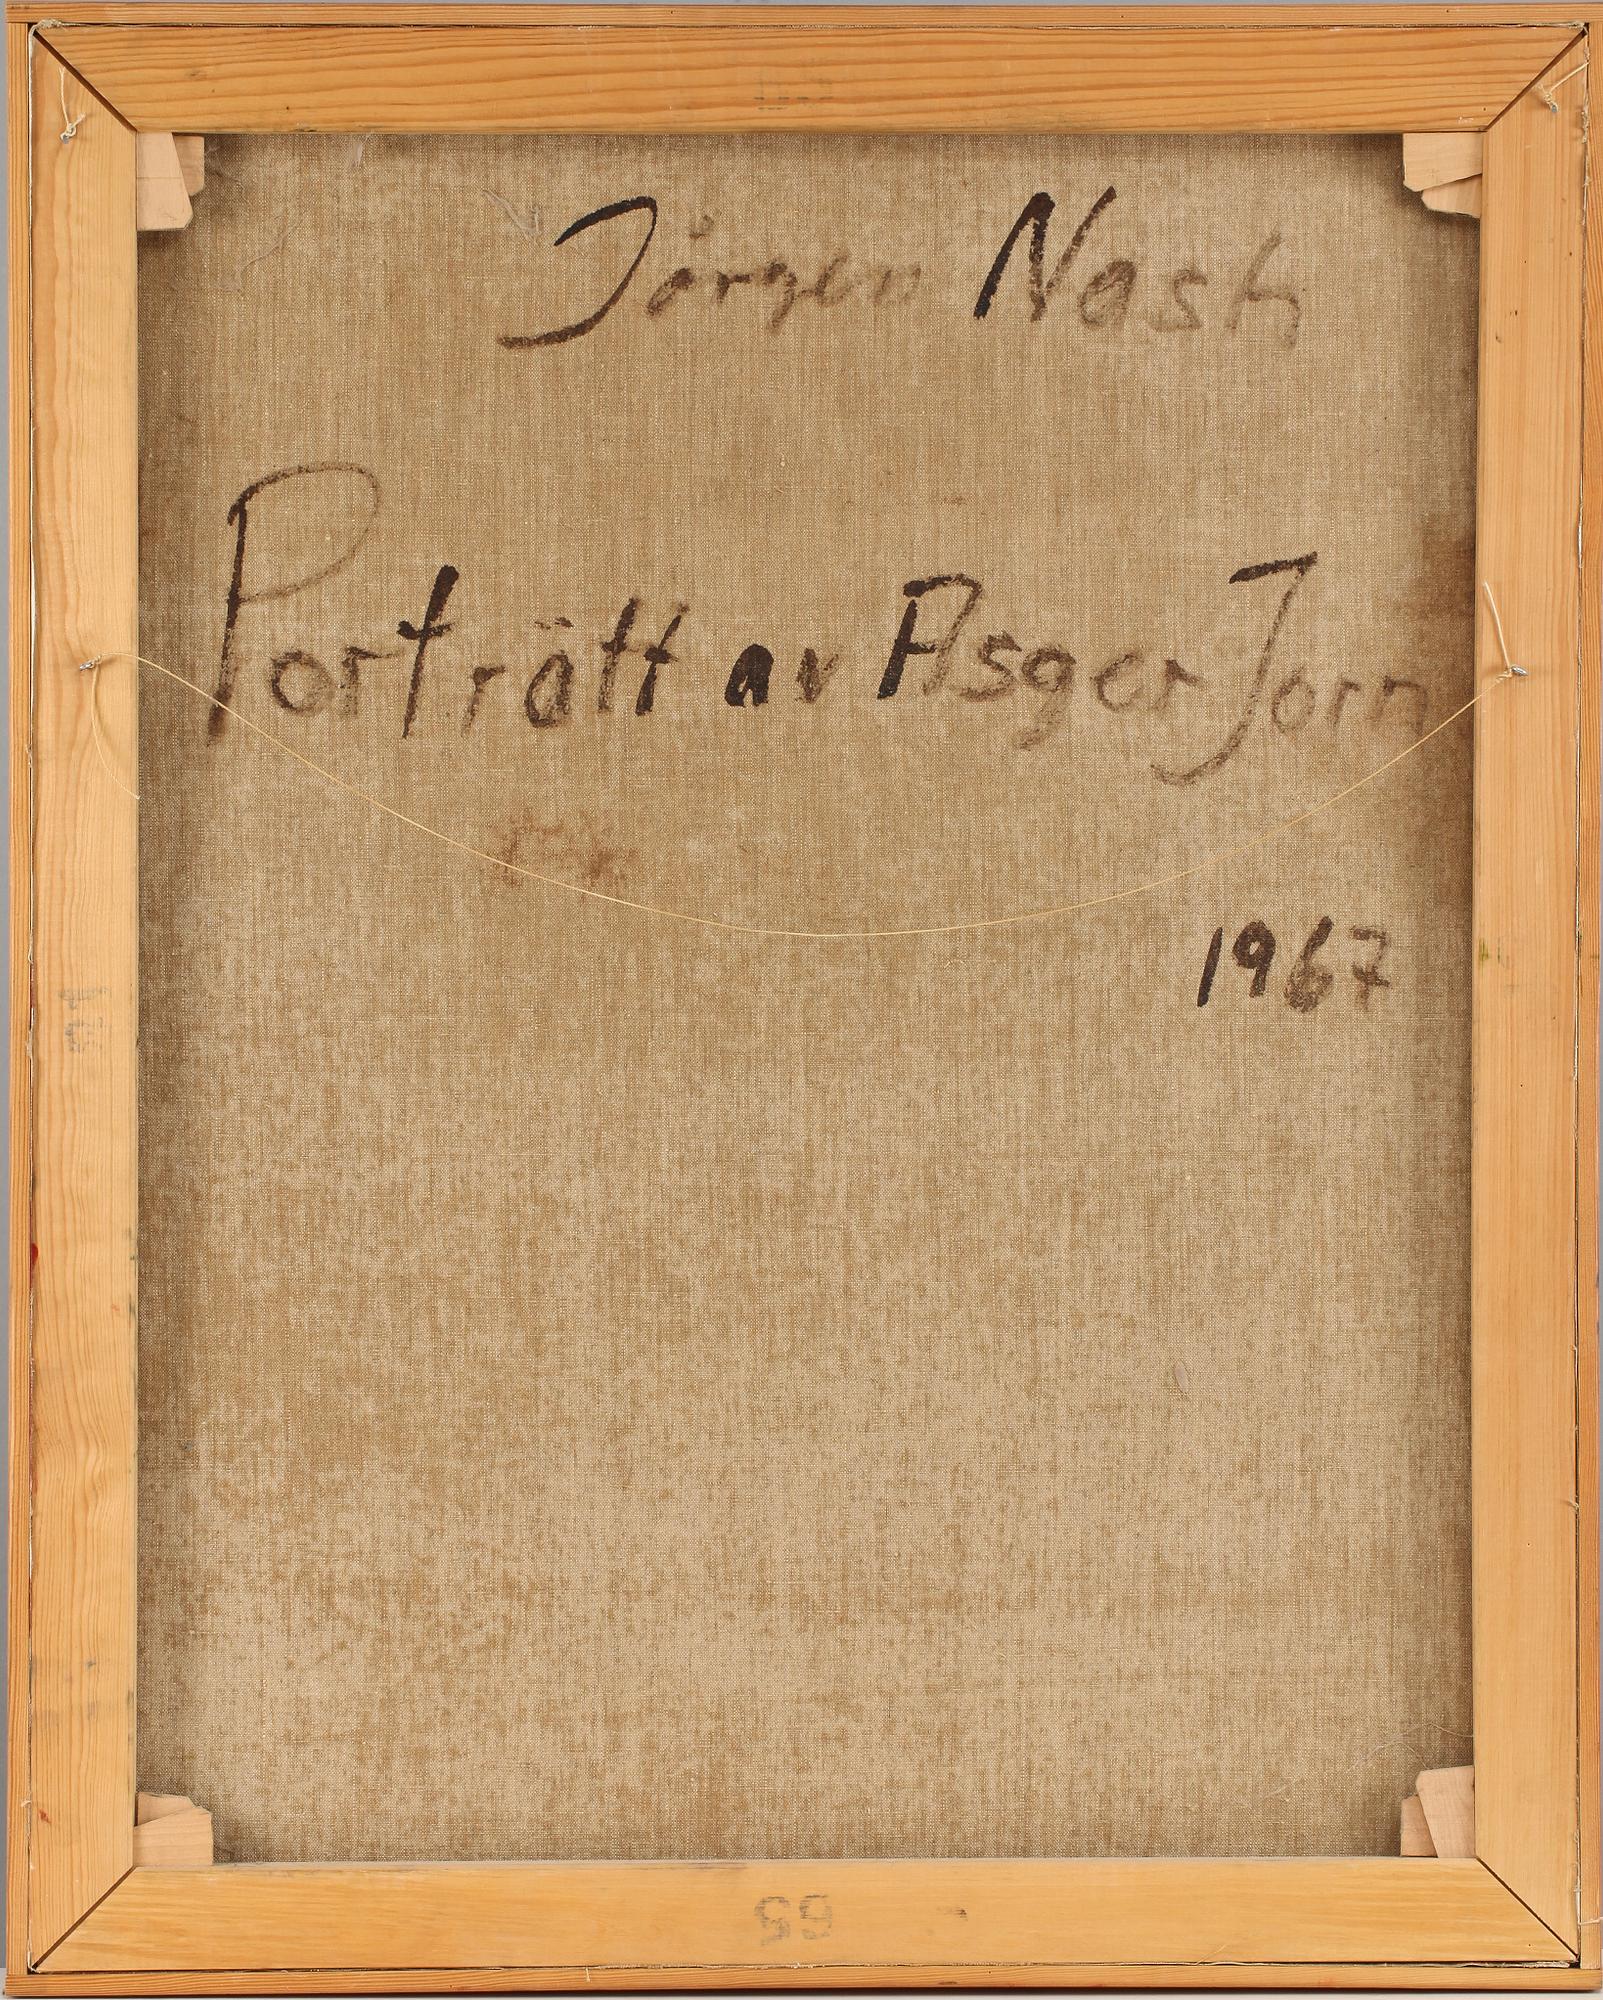 Jörgen Nash
Porträtt av Asger Jorn
1967
65